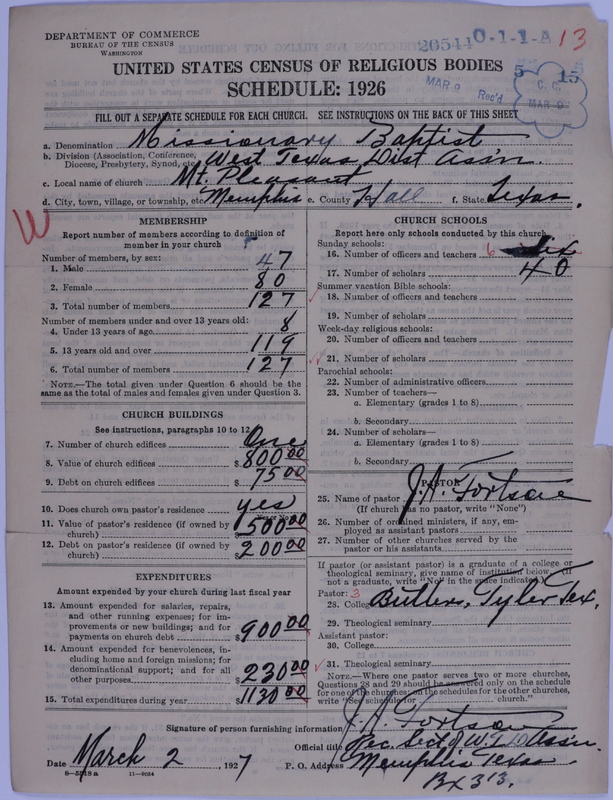 DEPARTMENT OF COMMERCE
BUREAU OF THE CENSUS
WASHINGTON
20544 0-1-1-A 13
UNITED STATES CENSUS OF RELIGIOUS BODIES
SCHEDULE: 1926
MAR 9 Rec'd
5 15
C. C.
MAR 9
FILL OUT A SEPARATE SCHEDULE FOR EACH CHURCH. SEE INSTRUCTIONS ON THE BACK OF THIS SHEET
a. Denomination Missionary Baptist
b. Division (Association, Conference, Diocese, Presbytery, Synod, etc. West Texas Dist Ass'n.
c. Local name of church Mt. Pleasant
d. City, town, village, or township, etc. Memphis e. County Hall f. State Texas.
W
MEMBERSHIP
Report number of members according to definition of
member in your church
Number of members, by sex:
1. Male 47
2. Female 80
3. Total number of members 127
Number of members under and over 13 years old:
4. Under 13 years of age 8
5. 13 years old and over 119
6. Total number of members 127
NOTE.—The total given under Question 6 should be the
same as the total of males and females given under Question 3.
CHURCH BUILDINGS
See instructions, paragraphs 10 to 12
7. Number of church edifices One
8. Value of church edifices $ 800.00
9. Debt on church edifices $ 75.00
10. Does church own pastor's residence yes
11. Value of pastor's residence (if owned by
church) $ 500.00
12. Debt on pastor's residence (if owned by
church) $ 200.00
EXPENDITURES
Amount expended by your church during last fiscal year
13. Amount expended for salaries, repairs,
and other running expenses; for im-
provements or new buildings; and for
payments on church debt $ 900.00
14. Amount expended for benevolences, in-
cluding home and foreign missions; for
denominational support; and for all
other purposes $ 230.00
15. Total expenditures during year $ 1130.00
CHURCH SCHOOLS
Report here only schools conducted by this church
Sunday schools:
16. Number of officers and teachers 6 Six
17. Number of scholars 40
Summer vacation Bible schools:
18. Number of officers and teachers
19. Number of scholars
Week-day religious schools:
20. Number of officers and teachers
21. Number of scholars
Parochial schools:
22. Number of administrative officers
23. Number of teachers—
a. Elementary (grades 1 to 8)
b. Secondary
24. Number of scholars—
a. Elementary (grades 1 to 8)
b. Secondary
PASTOR
25. Name of pastor J. H. Fortson
(If church has no pastor, write "None")
26. Number of ordained ministers, if any, em-
ployed as assistant pastors
27. Number of other churches served by the
pastor or his assistants
If pastor (or assistant pastor) is a graduate of a college or
theological seminary, give name of institution below. (If
not a graduate, write "No" in the space indicated.)
Pastor: 3
28. College Butlers, Tyler Tex.
29. Theological seminary
Assistant pastor:
30. College
31. Theological seminary
NOTE.—Where one pastor serves two or more churches,
Questions 28 and 29 should be answered only on the schedule
for one of the churches; on the schedules for the other churches,
write "See schedule for church."
Signature of person furnishing information J. H. Fortson
Official title Rec. Sect of W. T. D Ass'n.
Date March 2, 1927 P. O. Address Memphis Texas
Bx 313.
8-5518 a 11-9034